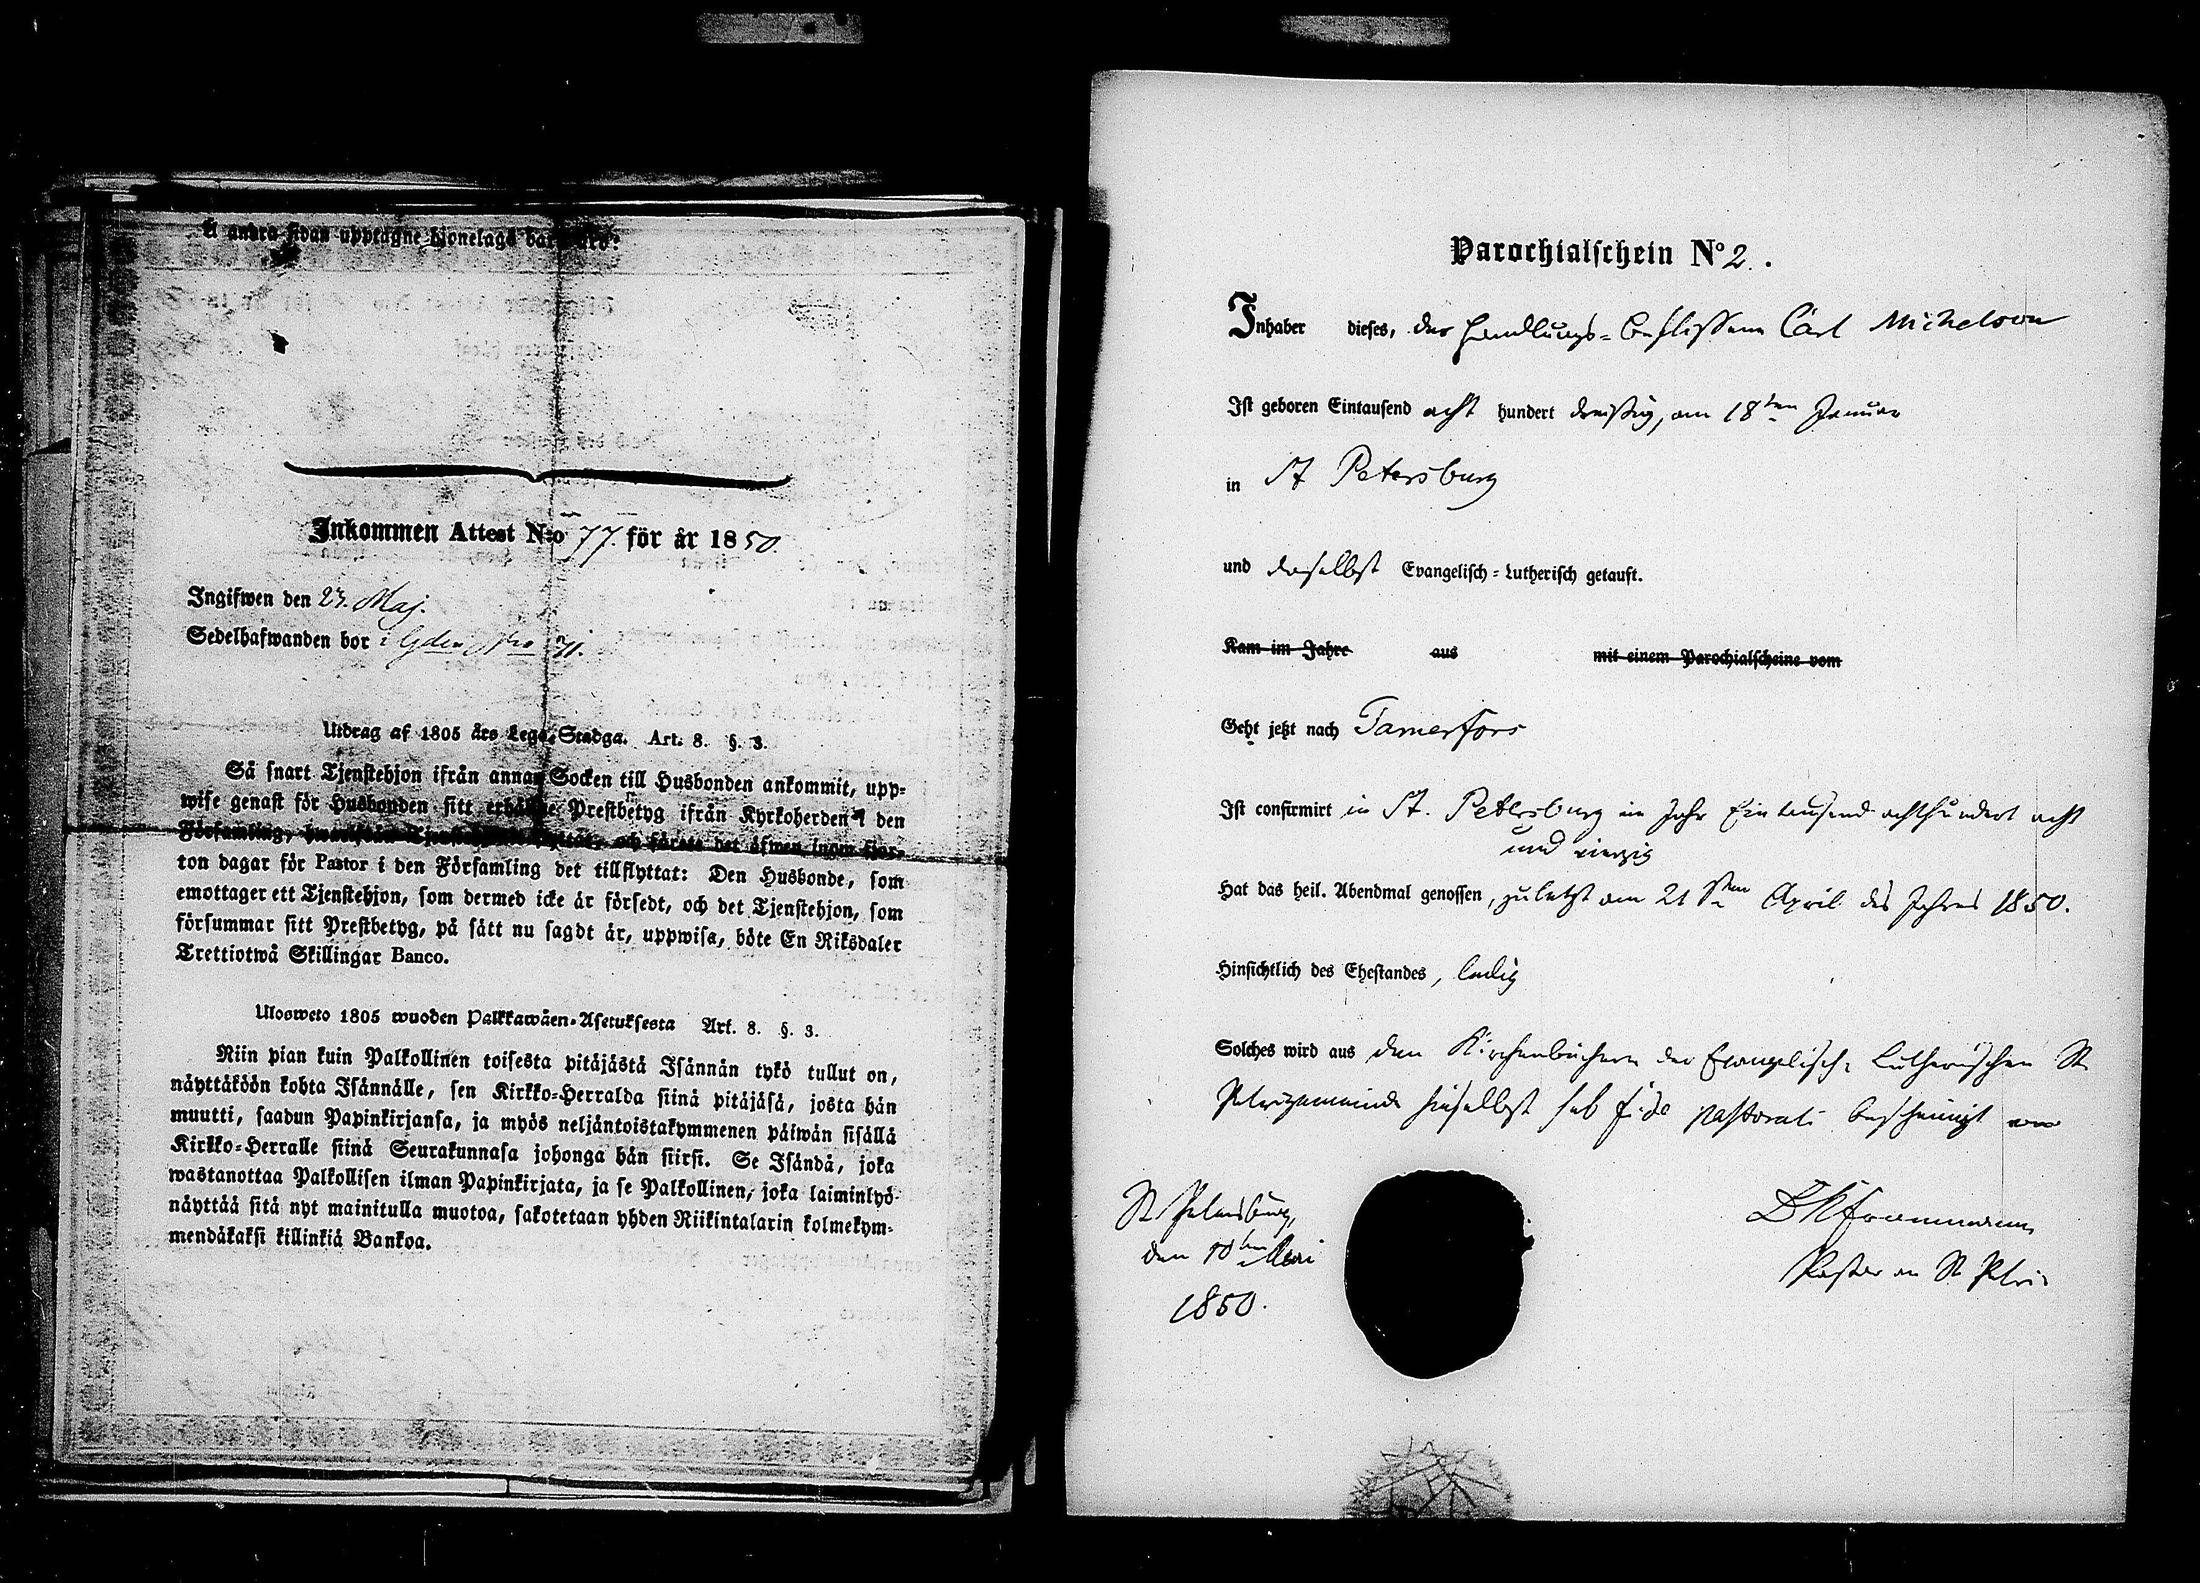 å andra sidan upptagne hjonelags
Inkommen Attest N:o 77. för år 1850.
Ingifwen den 23. Maj.
Sedelhafwanden bor i Gården Nro 71.
Utdrag af 1805 års Lego-Stadga. Art. 8. §. 3.
Så snart Tjenstehjon ifrån annan Socken till Husbonden ankommit, upp-
wise genast för Husbonden sitt erhållne Prestbetyg ifrån Kyrkoherden i den
Församling, hwarifrån och förete det äfwen inom fjor-
ton dagar för Pastor i den Församling det tillflyttat: Den Husbonde, som
emottager ett Tjenstehjon, som dermed icke är försedt, och det Tjenstehjon, som
försummar sitt Prestbetyg, på sätt nu sagdt är, uppwisa, böte En Riksdaler
Trettiotwå Skillingar Banco.
Ulosweto 1805 wuoden Palkkawäen-Asetuksesta Art. 8. §. 3.
Niin pian kuin Palkollinen toisesta pitäjästä Isännän tykö tullut on,
näyttäköön kohta Isännälle, sen Kirkko-Herralda siinä pitäjäsä, josta hän
muutti, saadun Papinkirjansa, ja myös neljäntoistakymmenen päiwän sisällä
Kirkko-Herralle siinä Seurakunnasa johonga hän siirsi. Se Isändä, joka
wastanottaa Palkollisen ilman Papinkirjata, ja se Palkollinen, joka laiminlyö
näyttää sitä nyt mainitulla muotoa, sakotetaan yhden Riikintalarin kolmekym-
mendäkaksi killinkiä Bankoa.
Parochialschein No 2.
Inhaber dieses, der Handlungs-Beflissene Carl Michelson
Ist geboren Eintausend acht hundert dreißig, am 18ten Januar
in St Petersburg
und daselbst Evangelisch-Lutherisch getauft.
Kam im Jahre aus mit einem Parochialscheine vom
Geht jetzt nach Tamerfors
Ist confirmirt in St. Petersburg im Jahr Eintausend achthundert acht
und vierzig
Hat das heil. Abendmal genossen, zuletzt am 21sten April des Jahres 1850.
Hinsichtlich des Ehestandes, ledig
Solches wird aus den Kirchenbüchern der Evangelisch-Lutherischen St
Petrigemeinde hieselbst sub fide pastorali bescheinigt von
St Petersburg,
den 10ten Mai
1850.
Pastor an St Petri